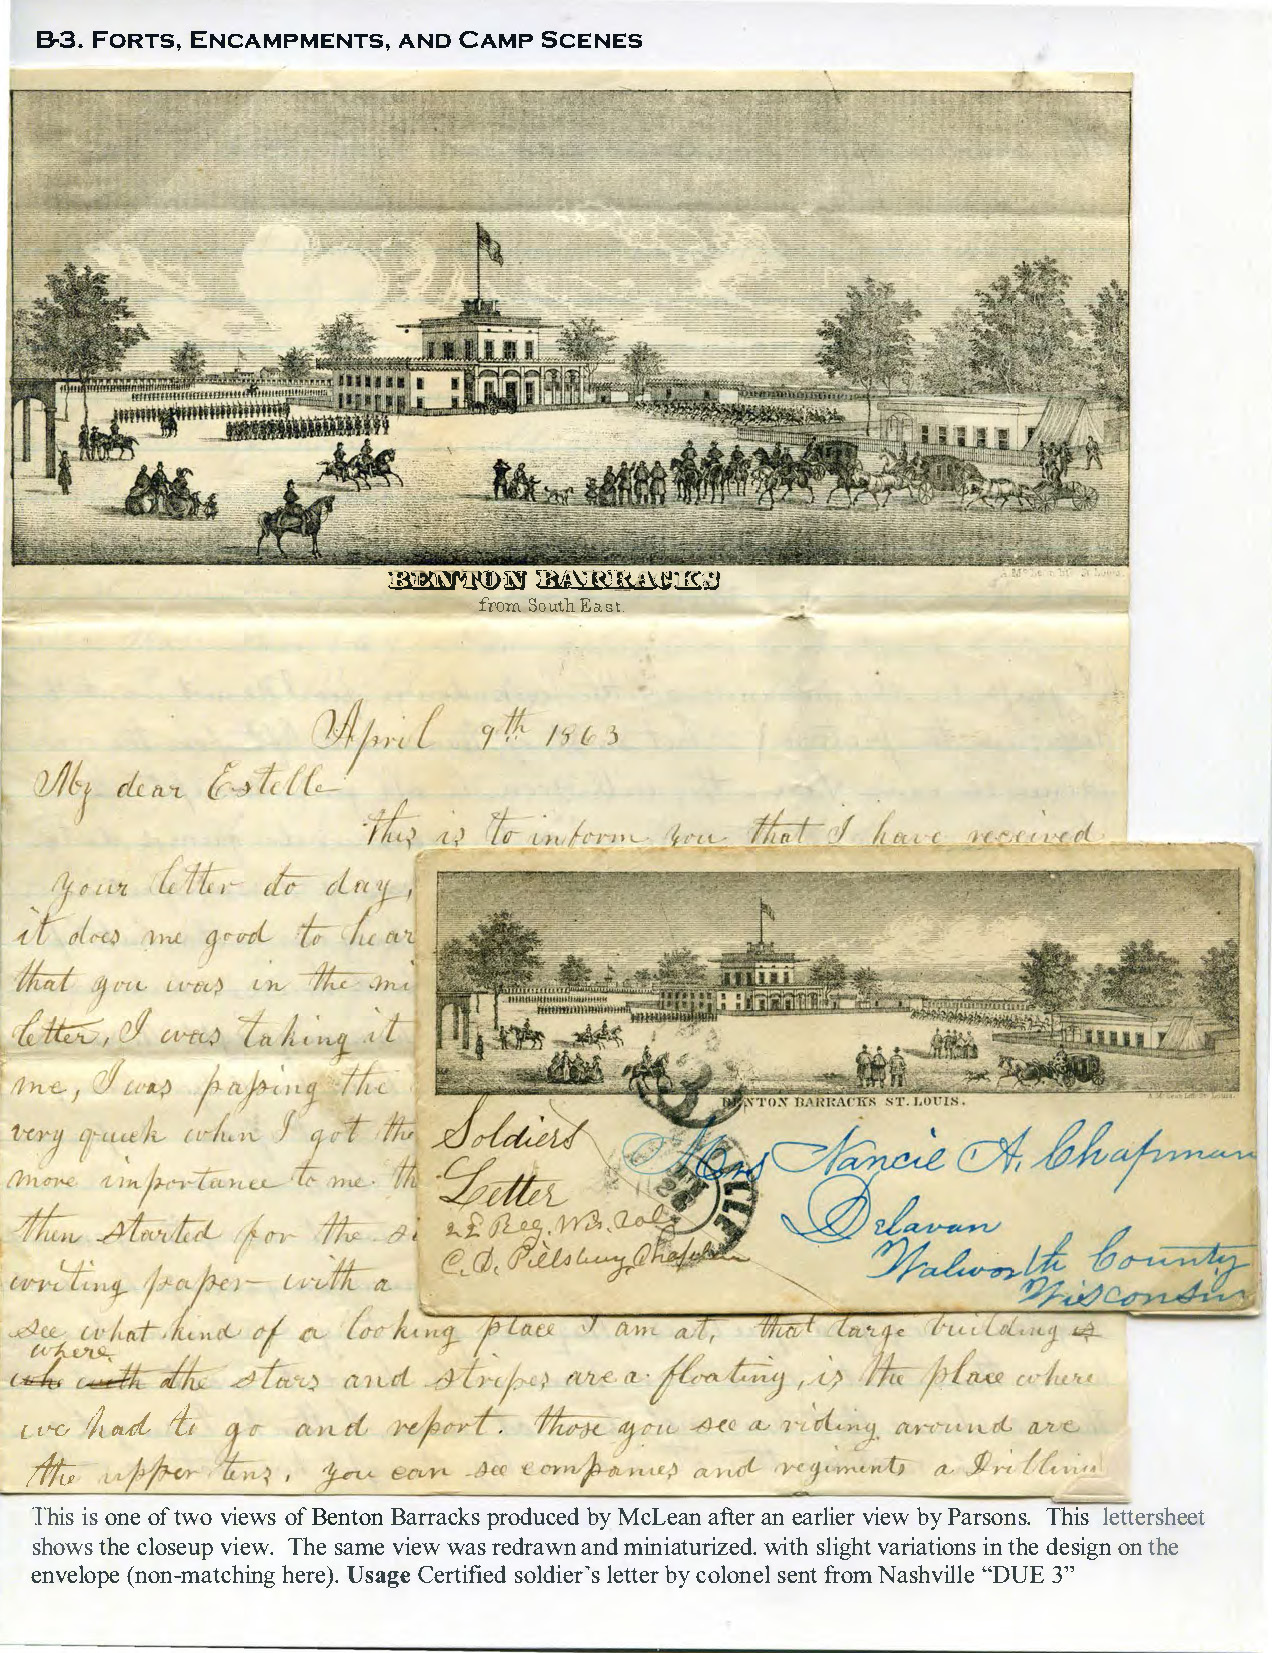 B-3. FORTS, ENCAMPMENTS, AND CAMP SCENES
BENTON BARRACKS
from South East.
April 9th 1863
My dear Estelle
this is to inform you that I have received
your letter to day,
it does me good to hear
that you was in the mi
letter, I was taking it
me, I was passing the
very quick when I got the
more importance to me th
then started for the si
writing paper with a
see what kind of a looking place I am at, that large building is
where
who with the stars and stripes are a floating, is the place where
we had to go and report. those you see a riding around are
the upper tens, you can see companies and regiments a Drilling
BENTON BARRACKS ST. LOUIS.
A. McLean Lith St. Louis.
Soldiers
Letter
Mrs Nancie A. Chapman
Delavan
Walworth County
Wisconsin
22 Reg. Wis. Vol.
C. D. Pillsbury, Chaplain
This is one of two views of Benton Barracks produced by McLean after an earlier view by Parsons. This lettersheet
shows the closeup view. The same view was redrawn and miniaturized. with slight variations in the design on the
envelope (non-matching here). Usage Certified soldier's letter by colonel sent from Nashville “DUE 3”